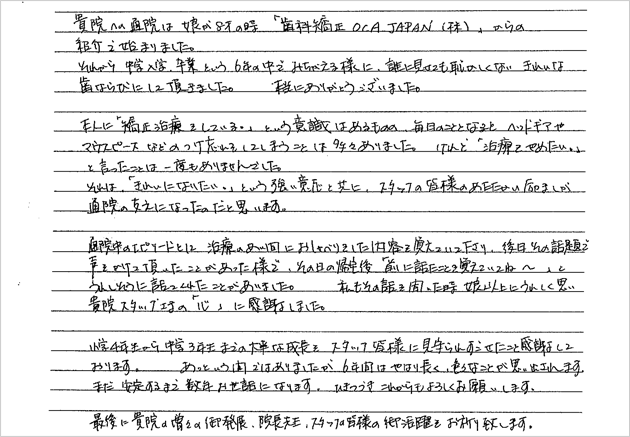 貴院への通院は娘が8才の時「歯科矯正 OCA JAPAN (株)」からの
紹介で始まりました。
それから中学入学、卒業という6年の中でみちがえる様に、誰に見せても恥かしくない きれいな
歯ならびにして頂きました。 本当にありがとうございました。
本人に「矯正治療をしている。」という意識はあるものの、毎日のこととなると ヘッドギアや
マウスピースなどのつけ忘れをしてしまうことは多々ありました。 けれど「治療をやめたい。」
と言ったことは一度もありませんでした。
それは、「きれいになりたい。」という強い意志と共に、スタッフの皆様のあたたかい励ましが
通院の支えになったのだと思います。
通院中のエピソードとして 治療のあい間におしゃべりをした内容を覚えていて下さり、後日その話題で
声をかけて頂いたことがあった様で、その日の帰宅後「前に話したこと覚えていてね〜」と
うれしそうに話してくれたことがありました。 私もその話を聞いた時 娘以上にうれしく思い
貴院スタッフさまの「心」に感謝しました。
小学4年生から中学3年生までの大事な成長を スタッフ皆様に見守られすごせたこと感謝して
おります。 あっという間ではありましたが 6年間はやはり長く、色々なことが思い出されます。
まだ安定するまで数年お世話になります。ひきつづきこれからもよろしくお願いします。
最後に貴院の増々の御発展、院長先生、スタッフの皆様の御活躍をお祈り致します。